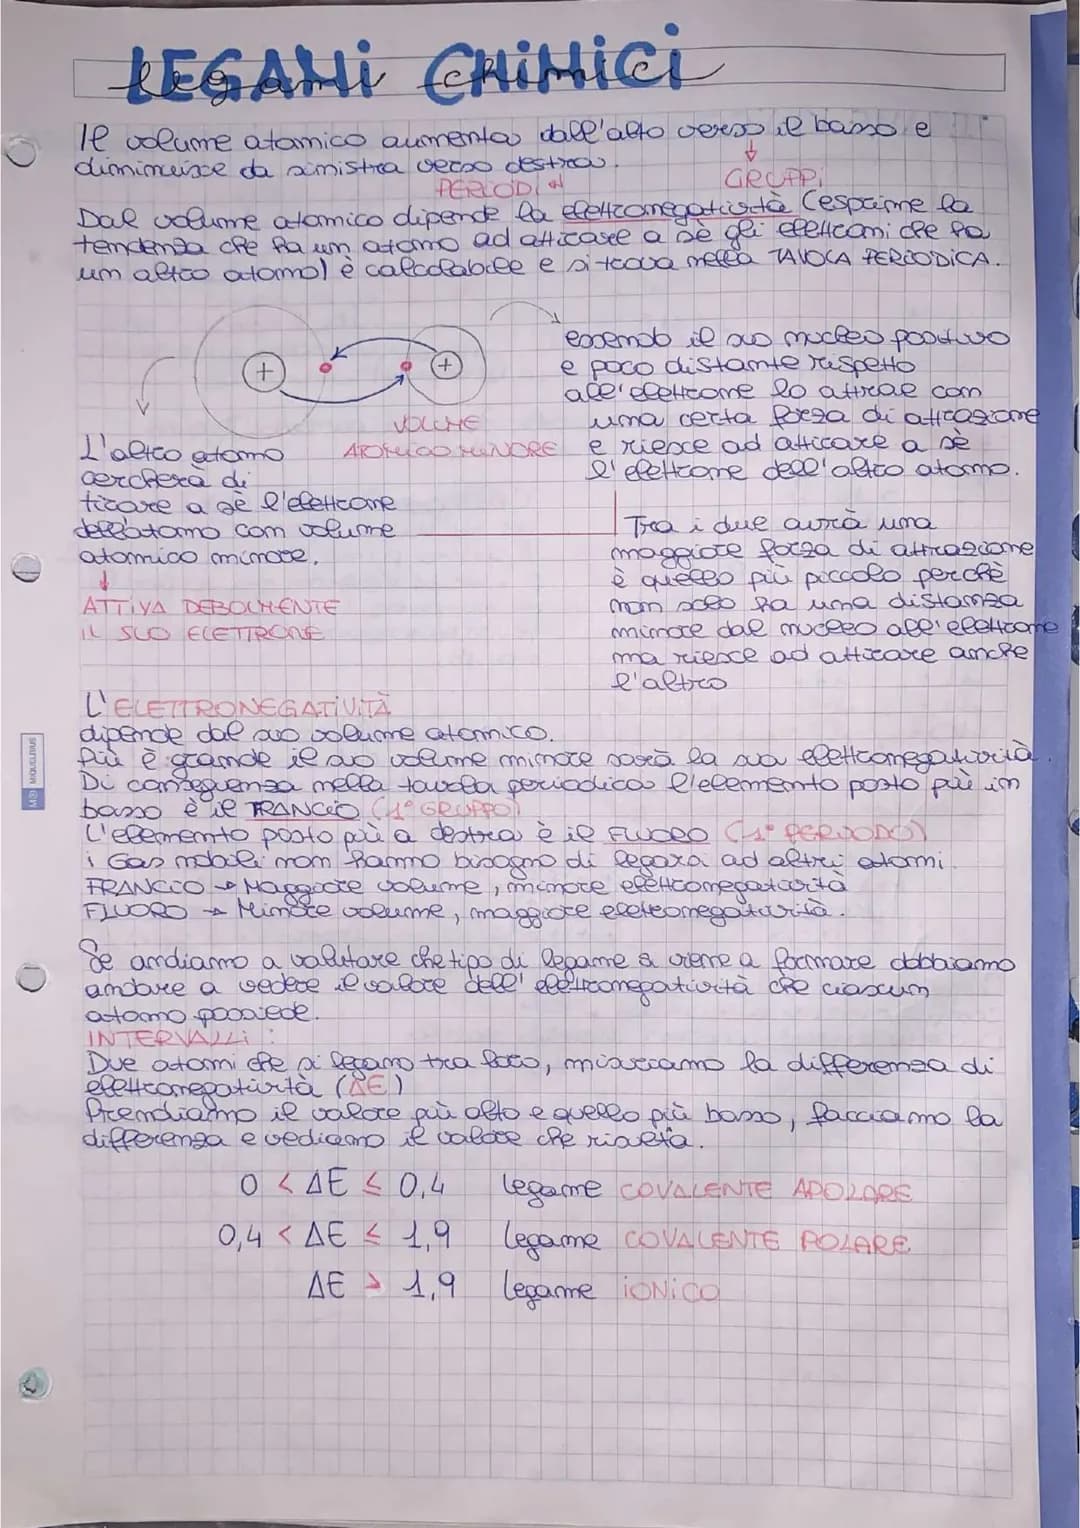 LEGAMI CHIMICI
legami chimici
Il volume atomico aumenta dall'alto verso il basso e
diminuisce da sinistra verso destra.
PERIODI
GRUPPI
Dal volume atomico dipende la elettronegatività (esprime la
tendenza che ha un atomo ad attirare a sè gli elettroni che ha
un altro atomo) è calcolabile e si trova nella TAVOLA PERIODICA.
essendo il suo nucleo positivo
e poco distante rispetto
all'elettrone lo attrae con
una certa forza di attrazione
e riesce ad attirare a sè
l'elettrone dell'altro atomo.
+
+
VOLUME
ATOMICO MINORE
L'altro atomo
cercherà di
tirare a sè l'elettrone
dell'atomo con volume
atomico minore.
ATTIVA DEBOLMENTE
IL SUO ELETTRONE
Tra i due avrà una
maggiore forza di attrazione
è quello più piccolo perchè
non solo ha una distanza
minore dal nucleo all'elettrone
ma riesce ad attirare anche
l'altro
L'ELETTRONEGATIVITÀ
dipende dal suo volume atomico.
Più è grande il suo volume minore sarà la sua elettronegatività.
Di conseguenza nella tavola periodica l'elemento posto più in
basso è il FRANCIO (1° GRUPPO)
L'elemento posto più a destra è il FLUORO (1° PERIODO)
i Gas nobili non hanno bisogno di legarsi ad altri atomi.
FRANCIO → Maggiore volume, minore elettronegatività
FLUORO → Minore volume, maggiore elettronegatività.
Se andiamo a valutare che tipo di legame si viene a formare dobbiamo
andare a vedere il valore dell'elettronegatività che ciascun
atomo possiede.
INTERVALLI:
Due atomi che si legano tra loro, misuriamo la differenza di
elettronegatività (ΔE)
Prendiamo il valore più alto e quello più basso, facciamo la
differenza e vediamo il valore che risulta.
0 < ΔE ≤ 0,4 legame COVALENTE APOLARE
0,4 < ΔE ≤ 1,9 legame COVALENTE POLARE
ΔE > 1,9 legame IONICO